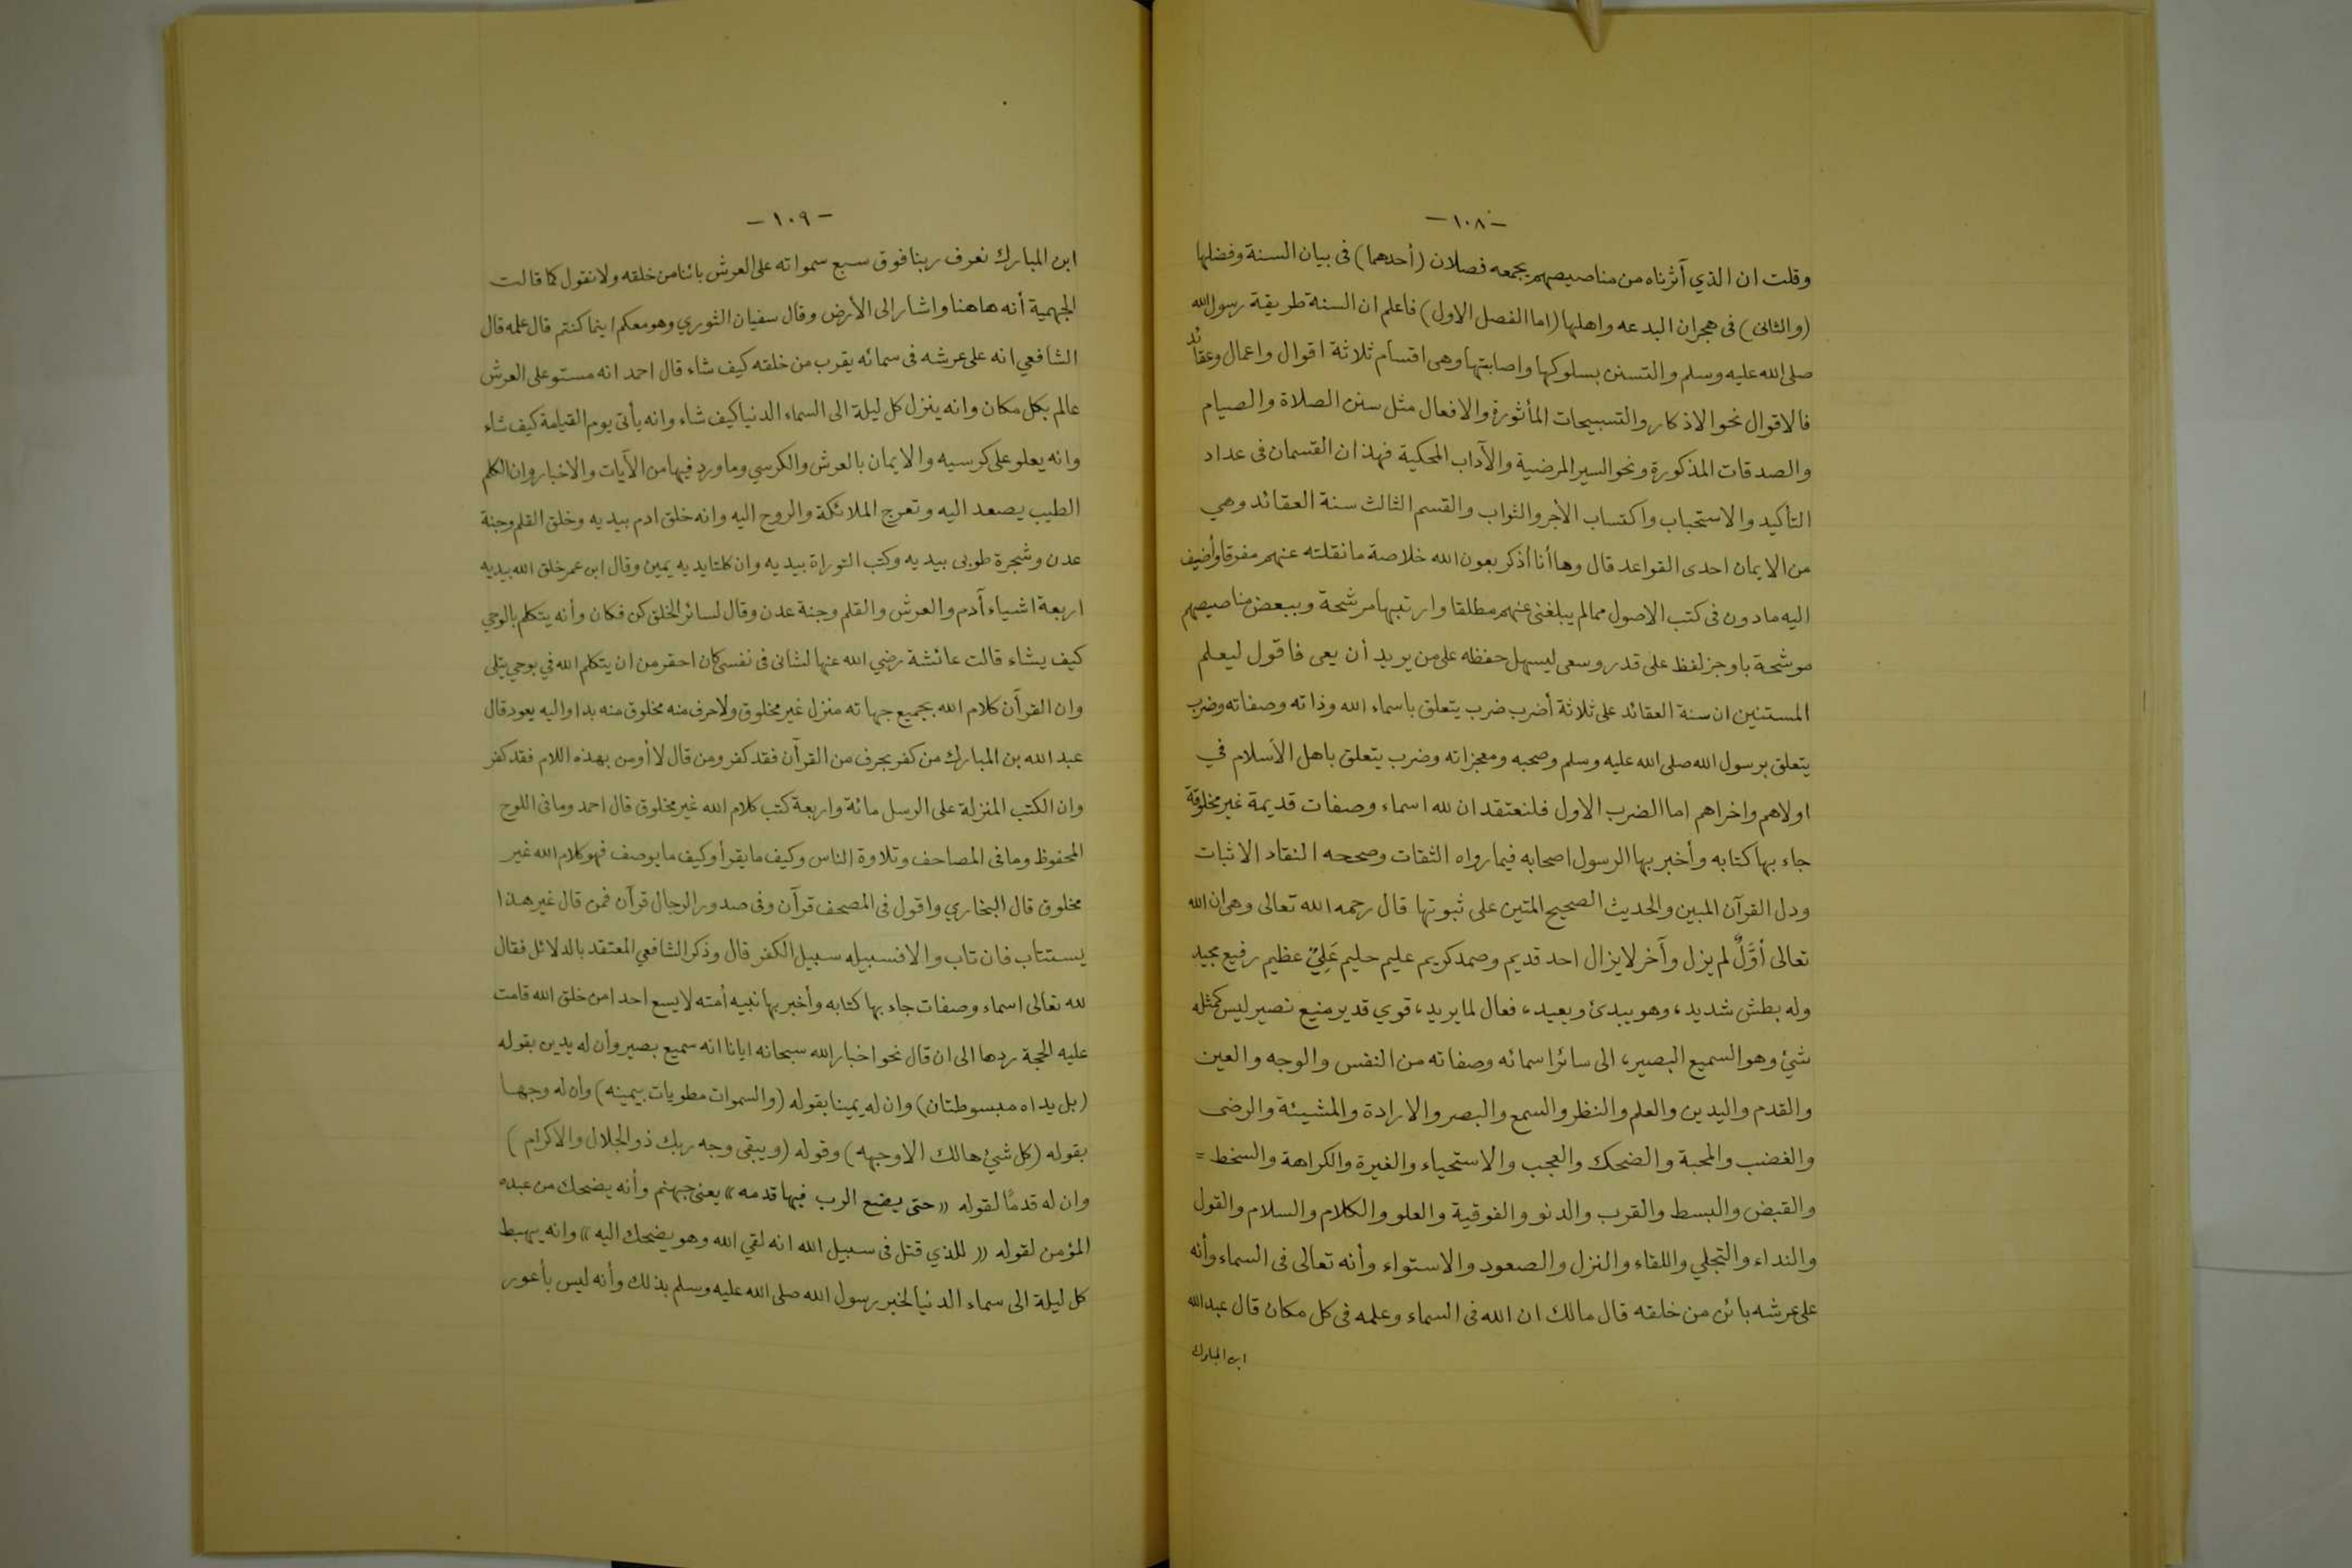 -١٠٨-
وقلت ان الذي آثرناه من مناصيصهم يجمعه فصلان (أحدهما) فى بيان السنة وفضلها
(والثانى) فى هجران البدعه واهلها (اما الفصل الاول) فاعلم ان السنة طريقة رسول الله
صلى الله عليه وسلم والتسنن بسلوكها واصابتها وهى اقسام ثلاثة اقوال واعمال وعقائد
فالاقوال نحو الاذكار والتسبيحات المأثورة والافعال مثل سنن الصلاة والصيام
والصدقات المذكورة ونحو السير المرضية والآداب المحكية فهذان القسمان فى عداد
التأكيد والاستحباب واكتساب الأجر والثواب والقسم الثالث سنة العقائد وهي
من الايمان احدى القواعد قال وها أنا أذكر بعون الله خلاصة ما نقلته عنهم مفرقا وأضيف
اليه مادون فى كتب الاصول مما لم يبلغنى عنهم مطلقا وارتبها مرشحة وببعض مناصيصهم
موشحة باوجز لفظ على قدر وسعى ليسهل حفظه على من يريد أن يعى فاقول ليعلم
المستنين ان سنة العقائد على ثلاثة أضرب ضرب يتعلق باسماء الله وذاته وصفاته وضرب
يتعلق برسول الله صلى الله عليه وسلم وصحبه ومعجزاته وضرب يتعلق باهل الأسلام في
اولاهم واخراهم اما الضرب الاول فلنعتقد ان لله اسماء وصفات قديمة غير مخلوقة
جاء بها كتابه وأخبر بها الرسول اصحابه فيما رواه الثقات وصححه النقاد الاثبات
ودل القرآن المبين والحديث الصحيح المتين على ثبوتها قال رحمه الله تعالى وهى ان الله
تعالى أوَّلٌ لم يزل وآخر لا يزال احد قديم وصمد كريم عليم حليم عَلِيٌ عظيم رفيع مجيد
وله بطش شديد، وهو يبدئ ويعيد، فعال لما يريد، قوي قدير منيع نصير ليس كمثله
شئ وهو السميع البصير، الى سائر اسمائه وصفاته من النفس والوجه والعين
والقدم واليدين والعلم والنظر والسمع والبصر والارادة والمشيئة والرضى
والغضب والمحبة والضحك والعجب والاستحياء والغيرة والكراهة والسخط =
والقبض والبسط والقرب والدنو والفوقية والعلو والكلام والسلام والقول
والنداء والتجلي واللقاء والنزل والصعود والاستواء وأنه تعالى فى السماء وأنه
على عرشه بائن من خلقه قال مالك ان الله فى السماء وعلمه فى كل مكان قال عبد الله
ابن المبارك
-١٠٩-
ابن المبارك نعرف ربنا فوق سبع سمواته على العرش بائنا من خلقه ولا نقول كما قالت
الجهمية أنه هاهنا واشار الى الأرض وقال سفيان الثوري وهو معكم اينما كنتم قال علمه قال
الشافعي انه على عرشه فى سمائه يقرب من خلقه كيف شاء قال احمد انه مستو على العرش
عالم بكل مكان وانه ينزل كل ليلة الى السماء الدنيا كيف شاء وانه يأتى يوم القيامة كيف شاء
وانه يعلو على كرسيه والايمان بالعرش والكرسي وما ورد فيها من الآيات والاخبار وان الكلم
الطيب يصعد اليه وتعرج الملائكة والروح اليه وانه خلق ادم بيديه وخلق القلم وجنة
عدن وشجرة طوبى بيديه وكتب التوراة بيديه وان كلتا يديه يمين وقال ابن عمر خلق الله بيديه
اربعة اشياء آدم والعرش والقلم وجنة عدن وقال لسائر الخلق كن فكان وأنه يتكلم بالوحي
كيف يشاء قالت عائشة رضي الله عنها لشانى فى نفسى كان احقر من ان يتكلم الله في بوحي يتلى
وان القرآن كلام الله بجميع جهاته منزل غير مخلوق ولا حرف منه مخلوق منه بدا واليه يعود قال
عبد الله بن المبارك من كفر بحرف من القرآن فقد كفر ومن قال لا أومن بهذه اللام فقد كفر
وان الكتب المنزلة على الرسل مائة واربعة كتب كلام الله غير مخلوق قال احمد وما فى اللوح
المحفوظ وما فى المصاحف وتلاوة الناس وكيف ما يقرأ وكيف ما يوصف فهو كلام الله غير
مخلوق قال البخاري واقول فى المصحف قرآن وفى صدور الرجال قرآن فمن قال غير هذا
يستتاب فان تاب والا فسبيله سبيل الكفر قال وذكر الشافعي المعتقد بالدلائل فقال
لله تعالى اسماء وصفات جاء بها كتابه وأخبر بها نبيه أمته لا يسع احدا من خلق الله قامت
عليه الحجة ردها الى ان قال نحو اخبار الله سبحانه ايانا انه سميع بصير وأن له يدين بقوله
(بل يداه مبسوطتان) وان له يمينا بقوله (والسموات مطويات بيمينه) وان له وجها
بقوله (كل شئ هالك الاوجهه) وقوله (ويبقى وجه ربك ذو الجلال والاكرام)
وان له قدمًا لقوله «حتى يضع الرب فيها قدمه» يعنى جهنم وأنه يضحك من عبده
المؤمن لقوله «للذي قتل فى سبيل الله انه لقي الله وهو يضحك اليه» وانه يهبط
كل ليلة الى سماء الدنيا لخبر رسول الله صلى الله عليه وسلم بذلك وأنه ليس بأعور